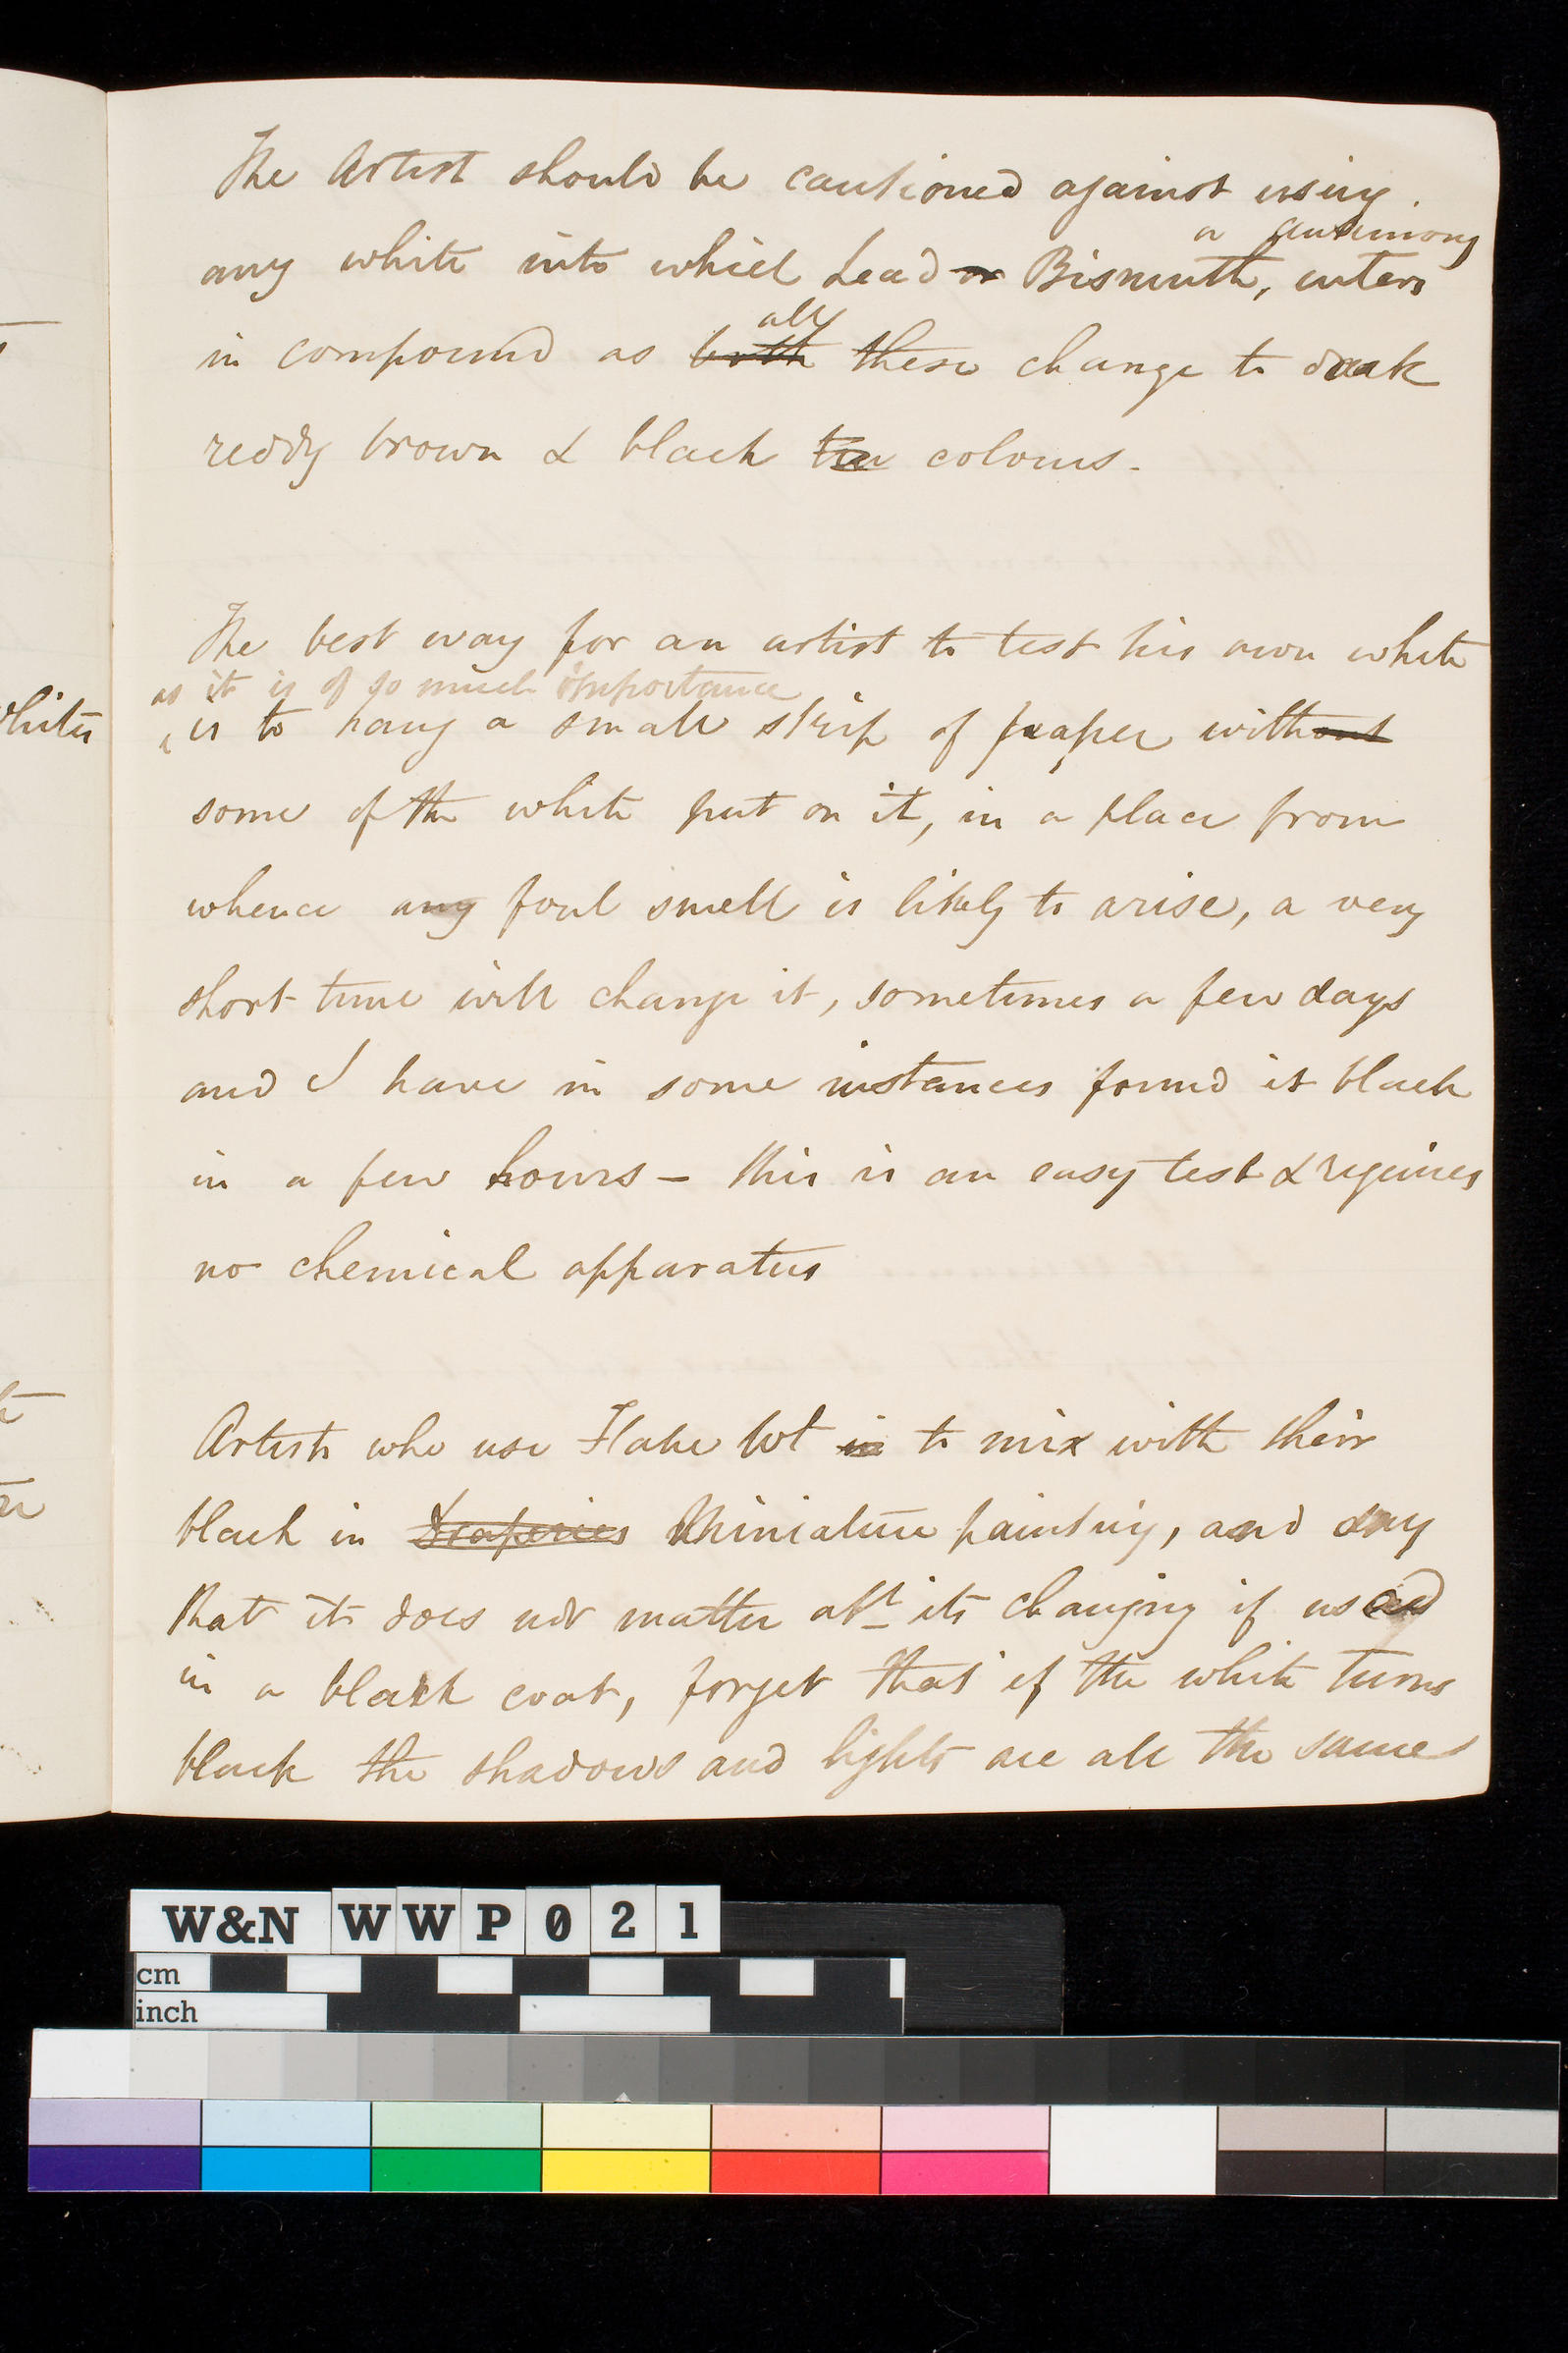 The Artist should be cautioned against using
a antimony
any white into which Lead or Bismuth, enters
all
in compound as both these change to dark
reddy brown & black colours.
The best way for an artist to test his own white
as it is of so much importance
is to hang a small strip of paper without
some of the white put on it, in a place from
whence any foul smell is likely to arise, a very
short time will change it, sometimes a few days
and I have in some instances found it black
in a few hours – this is an easy test & requires
no chemical apparatus
Artists who use Flake Wt in to mix with their
black in Draperies Miniature painting, and say
that its does not matter abt its changing if used
in a black coat, forget that if the white turns
black the shadows and lights are all the same
whites
W&N WWP021
cm
inch